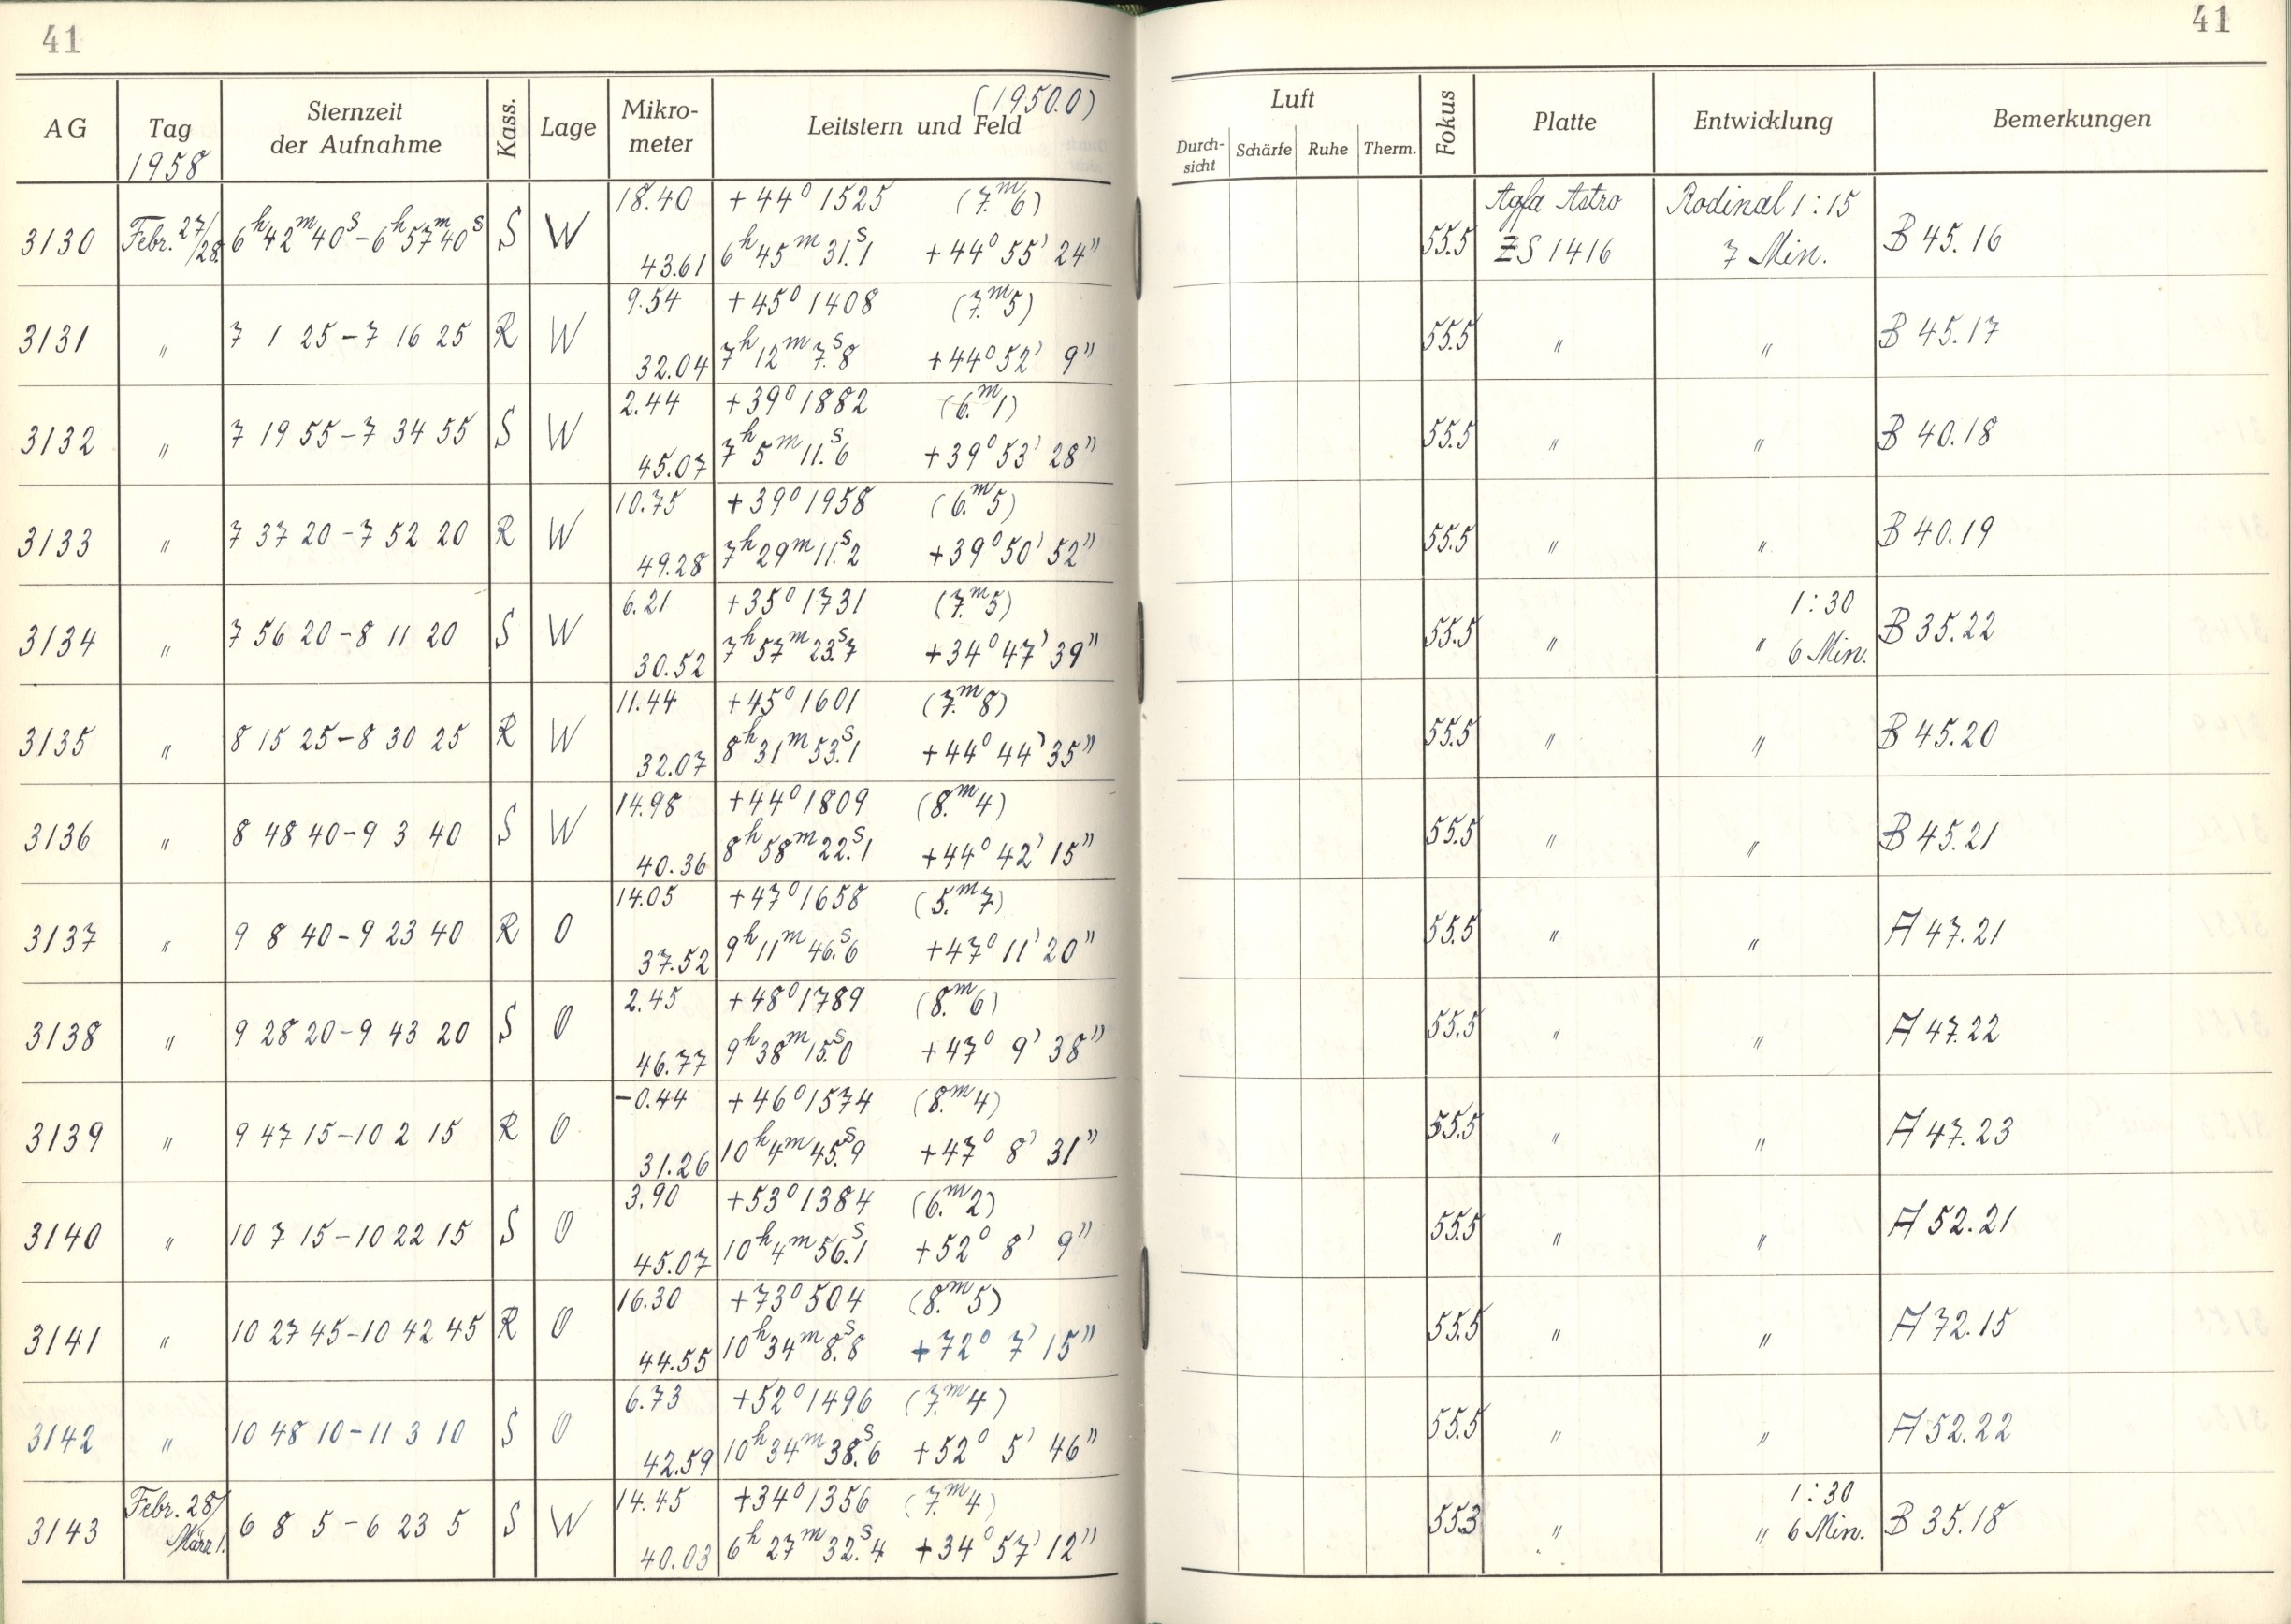 41
41
(1950.0)
AG Tag Sternzeit der Aufnahme Kass. Lage Mikro-meter Leitstern und Feld Luft Durch-sicht Schärfe Ruhe Therm. Fokus Platte Entwicklung Bemerkungen
1958
18.40 +44° 1525 (7.ᵐ6) Agfa Astro Rodinal 1:15
3130 Febr. 27/28. 6ʰ42ᵐ40ˢ–6ʰ57ᵐ40ˢ S W 43.61 6ʰ45ᵐ31.ˢ1 +44° 55' 24" 55.5 ZS 1416 7 Min. B 45.16
9.54 +45° 1408 (7.ᵐ5)
3131 " 7 1 25–7 16 25 R W 32.04 7ʰ12ᵐ7.ˢ8 +44° 52' 9" 55.5 " " B 45.17
2.44 +39° 1882 (6.ᵐ1)
3132 " 7 19 55–7 34 55 S W 45.07 7ʰ5ᵐ11.ˢ6 +39° 53' 28" 55.5 " " B 40.18
10.75 +39° 1958 (6.ᵐ5)
3133 " 7 37 20–7 52 20 R W 49.28 7ʰ29ᵐ11.ˢ2 +39° 50' 52" 55.5 " " B 40.19
6.21 +35° 1731 (7.ᵐ5) 1:30
3134 " 7 56 20–8 11 20 S W 30.52 7ʰ57ᵐ23.ˢ7 +34° 47' 39" 55.5 " " 6 Min. B 35.22
11.44 +45° 1601 (7.ᵐ8)
3135 " 8 15 25–8 30 25 R W 32.07 8ʰ31ᵐ53.ˢ1 +44° 44' 35" 55.5 " " B 45.20
14.98 +44° 1809 (8.ᵐ4)
3136 " 8 48 40–9 3 40 S W 40.36 8ʰ58ᵐ22.ˢ1 +44° 42' 15" 55.5 " " B 45.21
14.05 +47° 1658 (5.ᵐ7)
3137 " 9 8 40–9 23 40 R O 37.52 9ʰ11ᵐ46.ˢ6 +47° 11' 20" 55.5 " " A 47.21
2.45 +48° 1789 (8.ᵐ6)
3138 " 9 28 20–9 43 20 S O 46.77 9ʰ38ᵐ15.ˢ0 +47° 9' 38" 55.5 " " A 47.22
-0.44 +46° 1574 (8.ᵐ4)
3139 " 9 47 15–10 2 15 R O 31.26 10ʰ4ᵐ45.ˢ9 +47° 8' 31" 55.5 " " A 47.23
3.90 +53° 1384 (6.ᵐ2)
3140 " 10 7 15–10 22 15 S O 45.07 10ʰ4ᵐ56.ˢ1 +52° 8' 9" 55.5 " " A 52.21
16.30 +73° 504 (8.ᵐ5)
3141 " 10 27 45–10 42 45 R O 44.55 10ʰ34ᵐ8.ˢ8 +72° 7' 15" 55.5 " " A 72.15
6.73 +52° 1496 (7.ᵐ4)
3142 " 10 48 10–11 3 10 S O 42.59 10ʰ34ᵐ38.ˢ6 +52° 5' 46" 55.5 " " A 52.22
14.45 +34° 1356 (7.ᵐ4) 1:30
3143 Febr. 28/März 1. 6 8 5–6 23 5 S W 40.03 6ʰ27ᵐ32.ˢ4 +34° 57' 12" 55.3 " " 6 Min. B 35.18